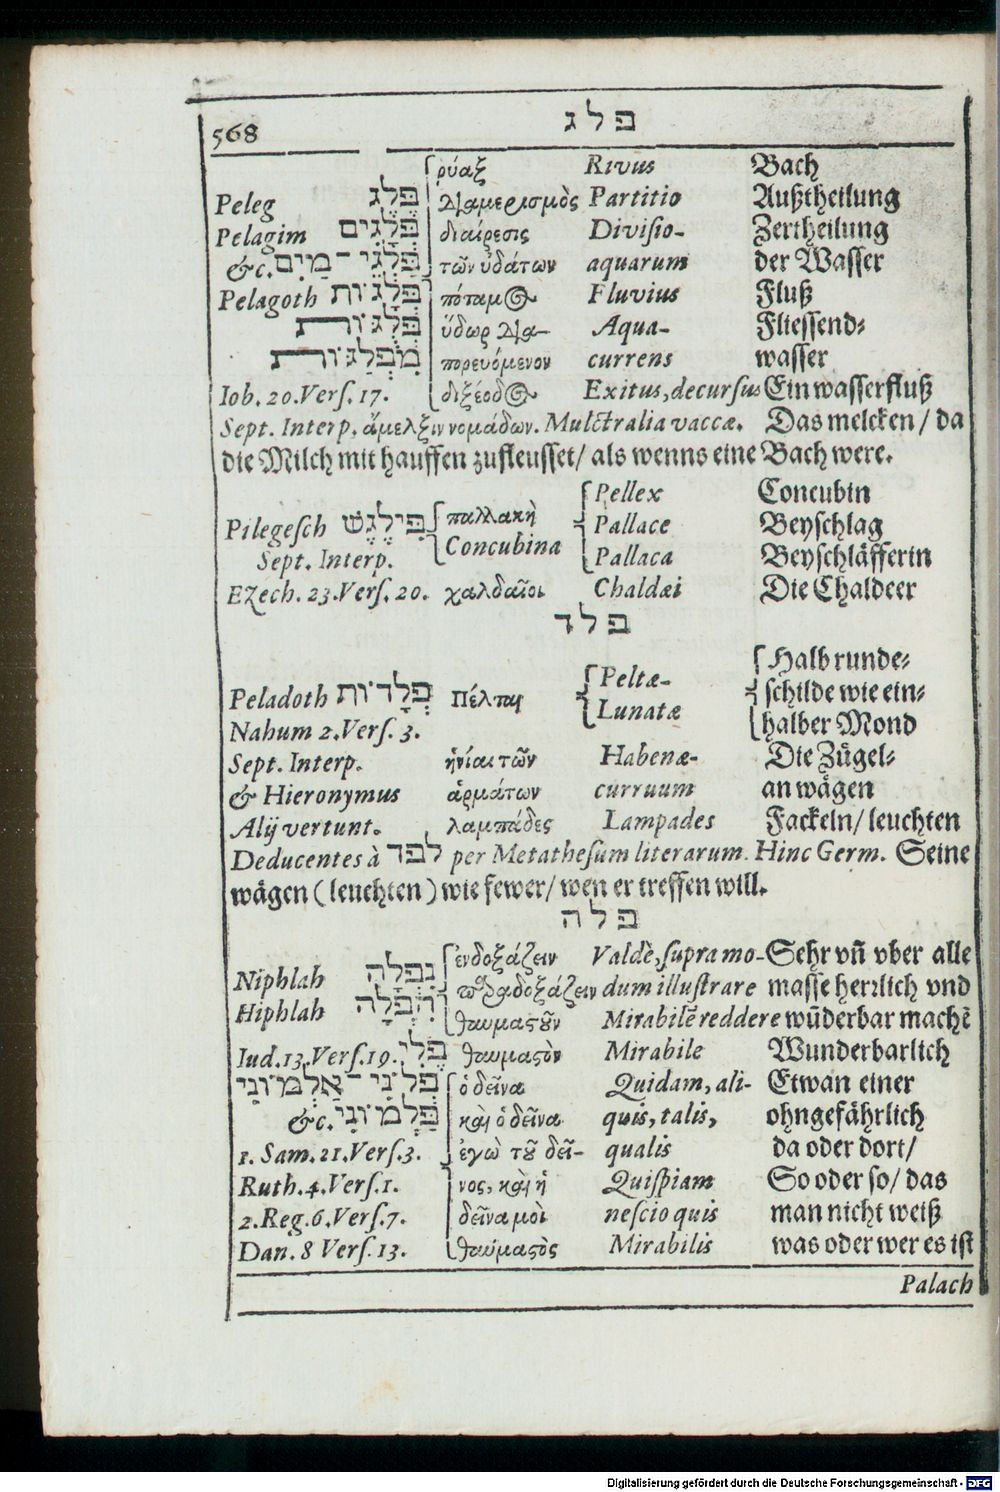 568 פלג
ῥύαξ Rivus Bach
Peleg פֶּלֶג διαμερισμὸς Partitio Außtheilung
Pelagim פְּלָגִים διαίρεσις Divisio- Zertheilung
&c. פַּלְגֵי־מַיִם τῶν ὑδάτων aquarum der Wasser
Pelagoth פְּלָגוֹת πόταμος Fluvius Fluß
פְּלַגּוֹת ὕδωρ δια- Aqua- Fliessend⸗
מִפְלַגּוֹת πορευόμενον currens wasser
Iob. 20. Vers. 17. διέξοδος Exitus, decursus Ein wasserfluß
Sept. Interp. ἄμελξιν νομάδων. Mulctralia vaccæ. Das melcken / da
die Milch mit hauffen zufleusset / als wenns eine Bach were.
Pellex Concubin
Pilegesch פִּילֶגֶשׁ παλλακὴ Pallace Beyschlag
Sept. Interp. Concubina Pallaca Beyschläfferin
Ezech. 23. Vers. 20. χαλδαῖοι Chaldæi Die Chaldeer
פלד
Halb runde⸗
Peladoth פְּלָדוֹת Πέλται Peltæ- schilde wie ein⸗
Nahum 2. Vers. 3. Lunatæ halber Mond
Sept. Interp. ἡνίαι τῶν Habenæ- Die Zügel⸗
& Hieronymus ἁρμάτων curruum an wägen
Alij vertunt. λαμπάδες Lampades Fackeln / leuchten
Deducentes à לפד per Metathesüm literarum. Hinc Germ. Seine
wägen (leuchten) wie fewer / wen er treffen will.
פלה
ἐνδοξάζειν Valdè, supra mo- Sehr vñ vber alle
Niphlah נִפְלָה παραδοξάζειν dum illustrare masse herrlich vnd
Hiphlah הִפְלָה θαυμαστοῦν Mirabilẽ reddere wũderbar machẽ
Iud. 13. Vers. 19. פֶּלִי θαυμαστὸν Mirabile Wunderbarlich
פְּלֹנִי־אַלְמוֹנִי ὁ δεῖνα Quidam, ali- Etwan einer
&c. פַּלְמוֹנִי καὶ ὁ δεῖνα quis, talis, ohngefährlich
1. Sam. 21. Vers. 3. ἐγὼ τοῦ δεῖ- qualis da oder dort /
Ruth. 4. Vers. 1. νος, καὶ ἡ Quispiam So oder so / das
2. Reg. 6. Vers. 7. δεῖνα μοὶ nescio quis man nicht weiß
Dan. 8 Vers. 13. θαύμαστὸς Mirabilis was oder wer es ist
Palach
Digitalisierung gefördert durch die Deutsche Forschungsgemeinschaft - DFG